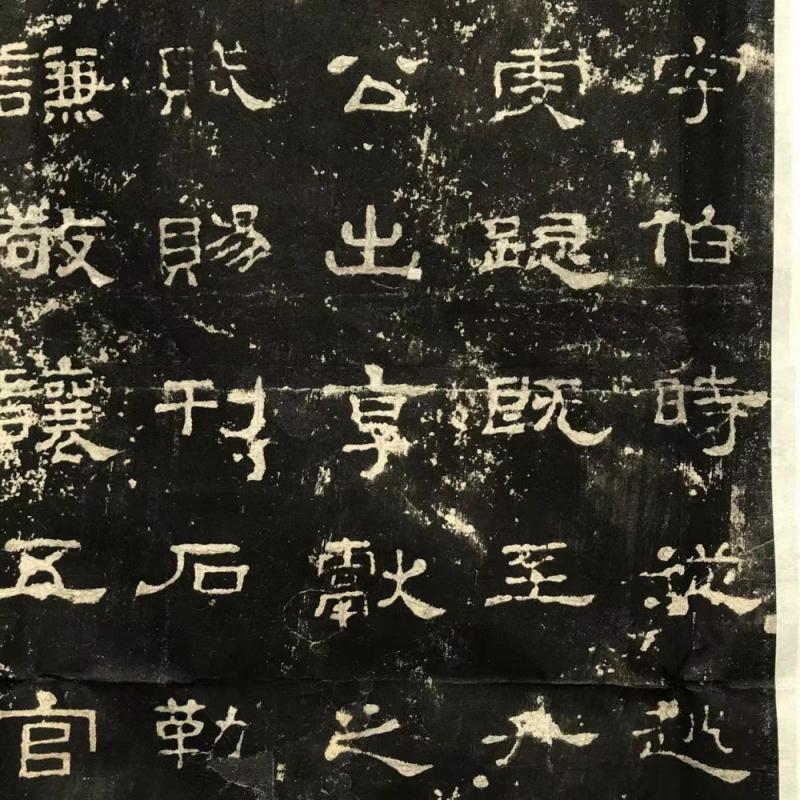 字伯時從越
虔跽既至升
公出享獻之
賦賜刊石勒
謙敬讓五官